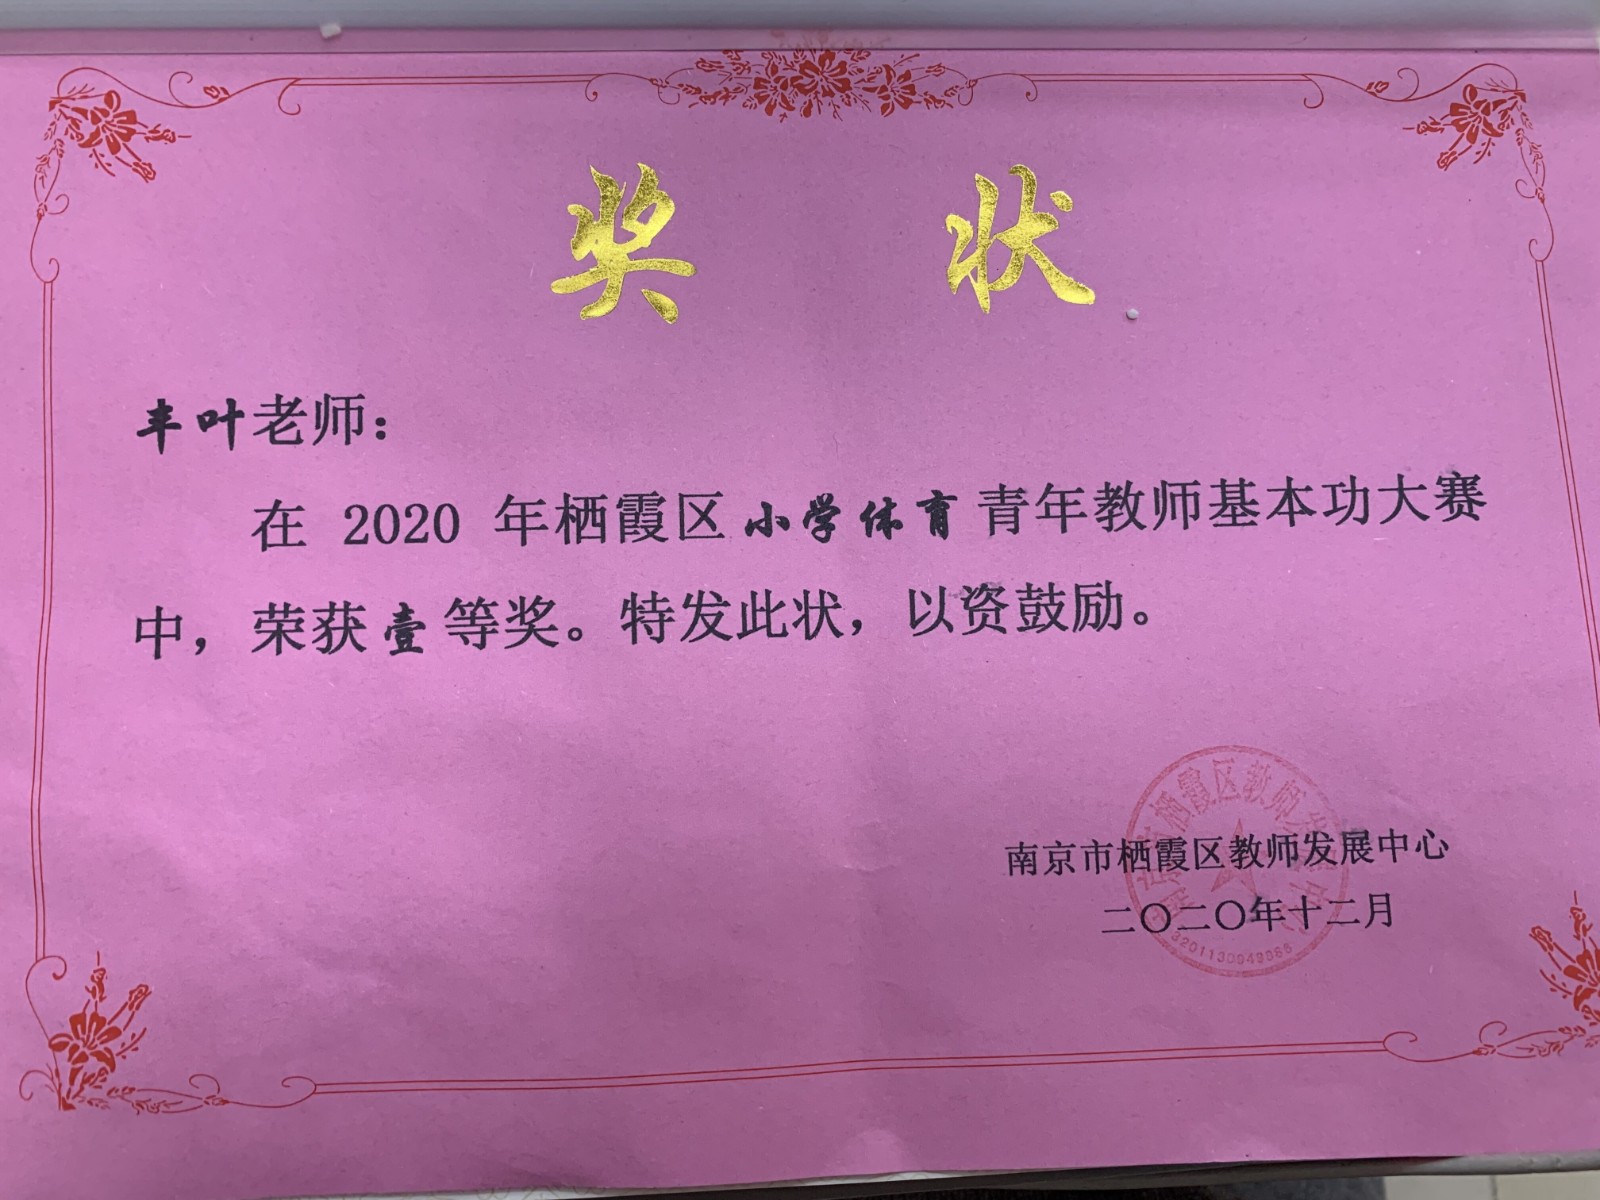 奖状
丰叶老师：
在 2020 年栖霞区小学体育青年教师基本功大赛
中，荣获壹等奖。特发此状，以资鼓励。
南京市栖霞区教师发展中心
二〇二〇年十二月